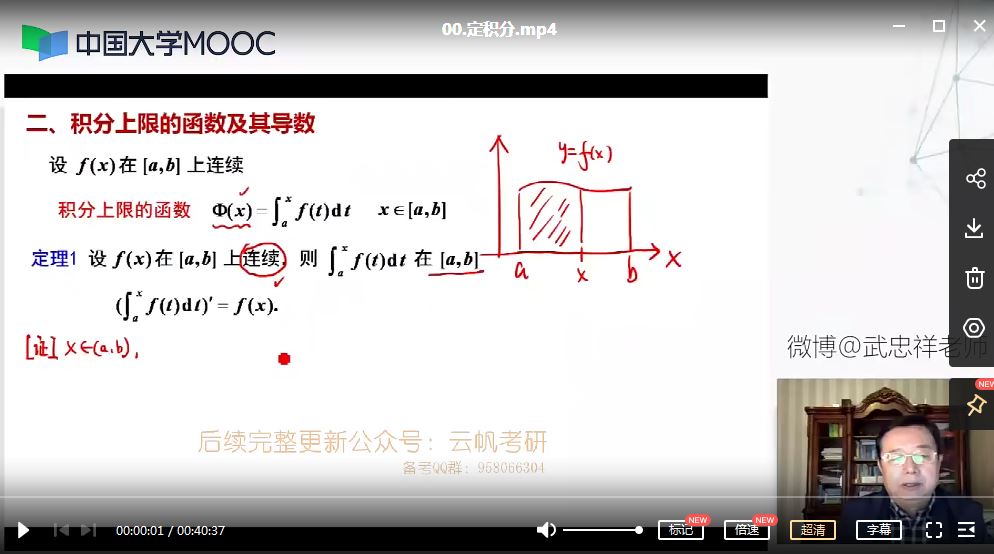 00.定积分.mp4
中国大学MOOC
二、积分上限的函数及其导数
设 f(x) 在 [a,b] 上连续
y=f(x)
积分上限的函数 Φ(x) = ∫ₐˣ f(t)dt x∈[a,b]
定理1 设 f(x) 在 [a,b] 上连续, 则 ∫ₐˣ f(t)dt 在 [a,b]
a x b x
(∫ₐˣ f(t)dt)′ = f(x).
[证] x∈(a,b),
微博@武忠祥老师
NEW
后续完整更新公众号：云帆考研
备考QQ群：958066304
00:00:01 / 00:40:37
标记 NEW 倍速 NEW 超清 字幕